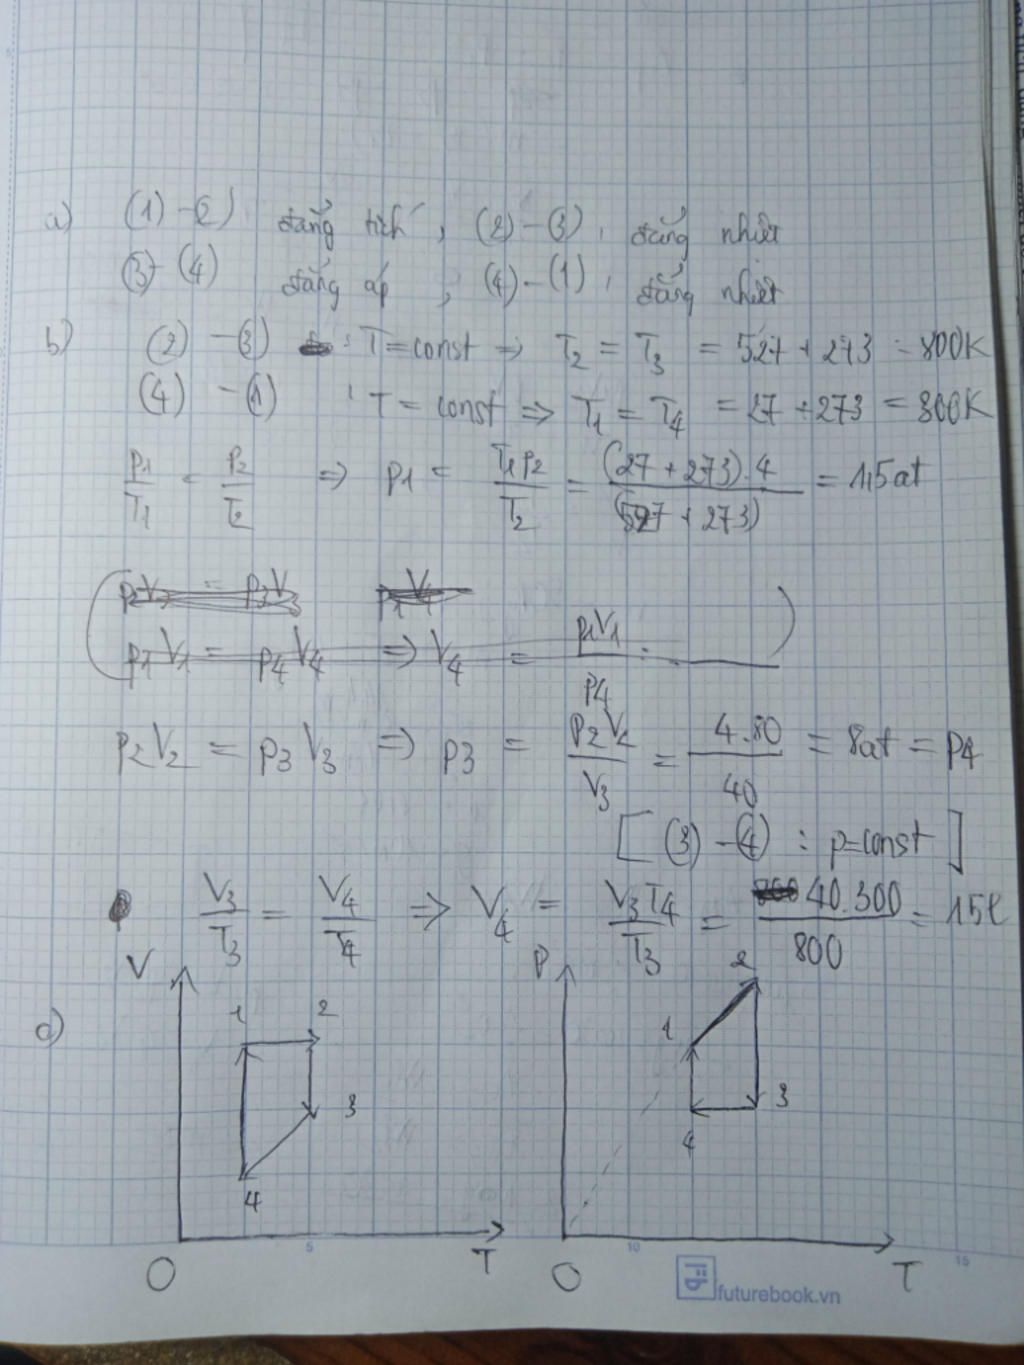 a) (1) - (2) đẳng tích, (2) - (3), đẳng nhiệt
(3) - (4) đẳng áp, (4) - (1), đẳng nhiệt
b) (2) - (3) : T = const => T2 = T3 = 527 + 273 = 800K
(4) - (1) : T = const => T1 = T4 = 27 + 273 = 800K
p1/T1 = p2/T2 => p1 = T1p2/T2 = (27 + 273).4/(527 + 273) = 1,5at
p2V2 = p3V3 p1V4
(p1V1 = p4V4 => V4 = p1V1/p4 = )
p2V2 = p3V3 => p3 = p2V2/V3 = 4.80/40 = 8at = p4
[(3) - (4) : p=const]
V3/T3 = V4/T4 => V4 = V3T4/T3 = 40.300/800 = 15l
c)
V
1 2
3
4
O T
P
2
1
3
4
O T
5 10 15
futurebook.vn